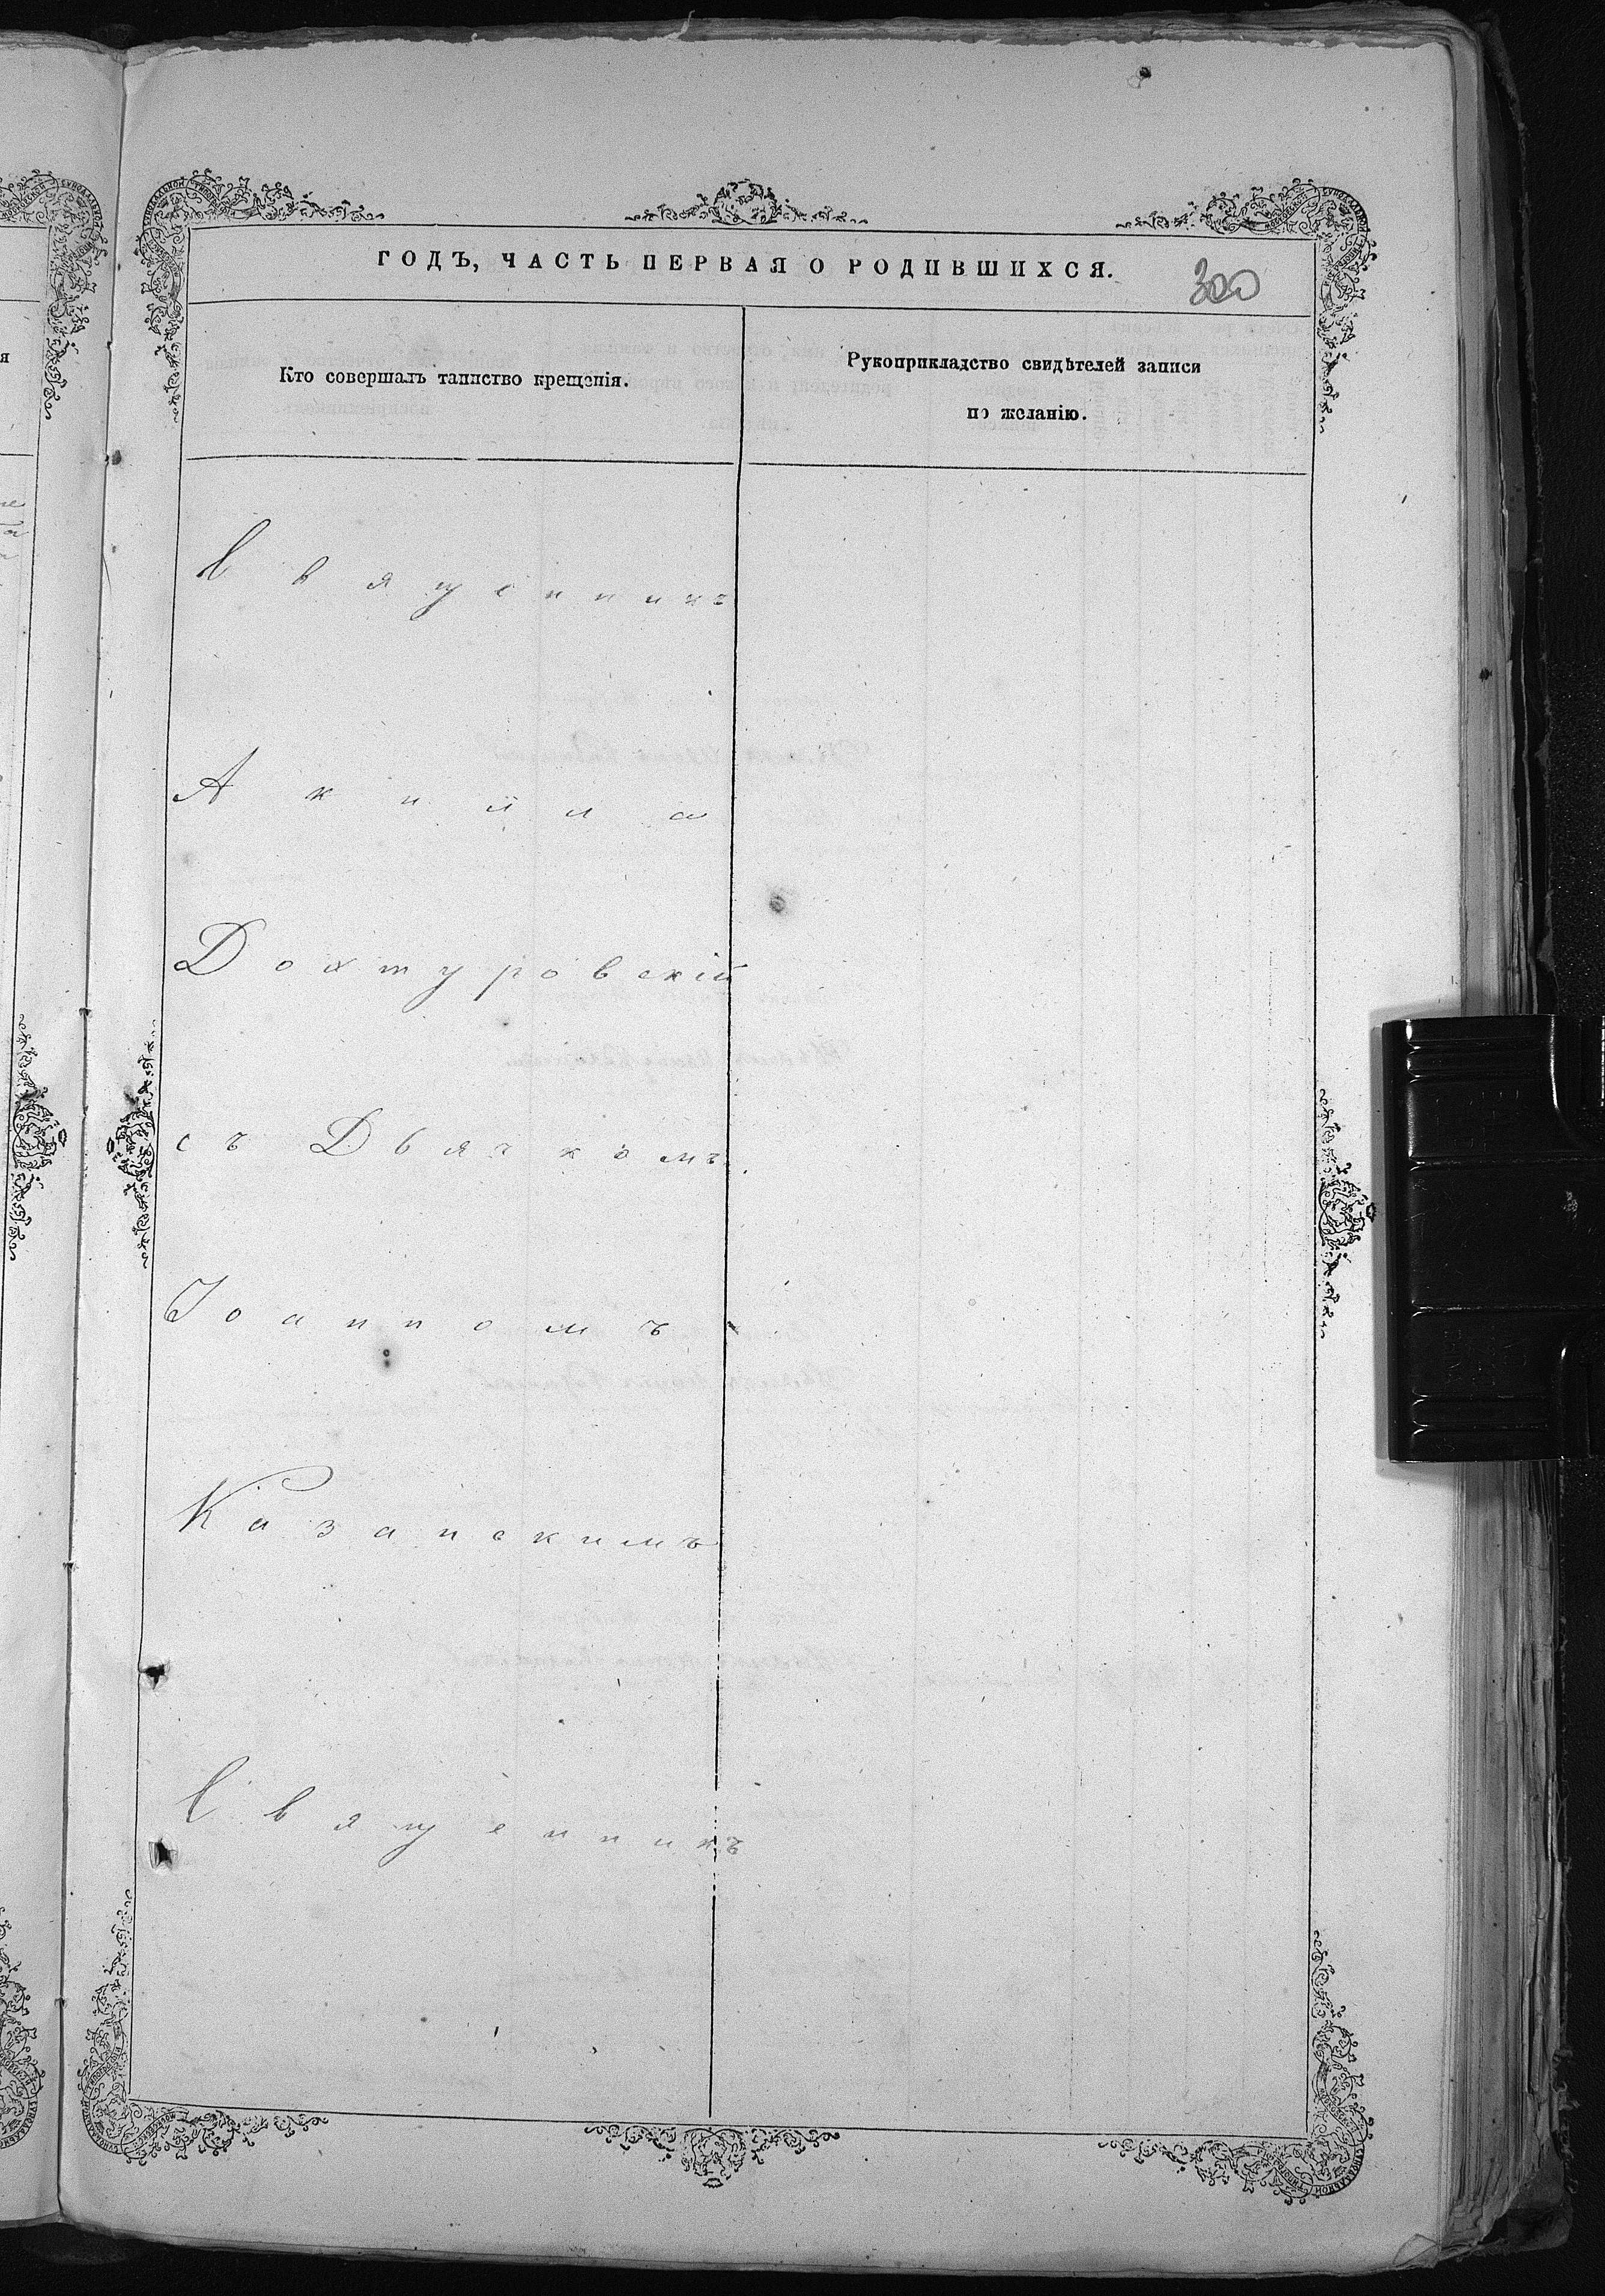 ГОДЪ, ЧАСТЬ ПЕРВАЯ О РОДИВШИХСЯ.
300
Кто совершалъ таинство крещенія.
Рукоприкладство свидѣтелей записи
по желанію.
Священникъ
Акила
Дохтуровскій
съ Дьячкомъ
Іоанномъ
Казанскимъ
Священникъ